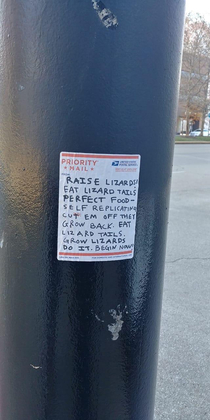 PRIORITY
★ MAIL ★
UNITED STATES
POSTAL SERVICE
RAISE LIZARDS!
EAT LIZARD TAILS
PERFECT FOOD-
SELF REPLICATING
CUT EM OFF THEY
GROW BACK. EAT
LIZARD TAILS.
GROW LIZARDS
DO IT. BEGIN NOW!